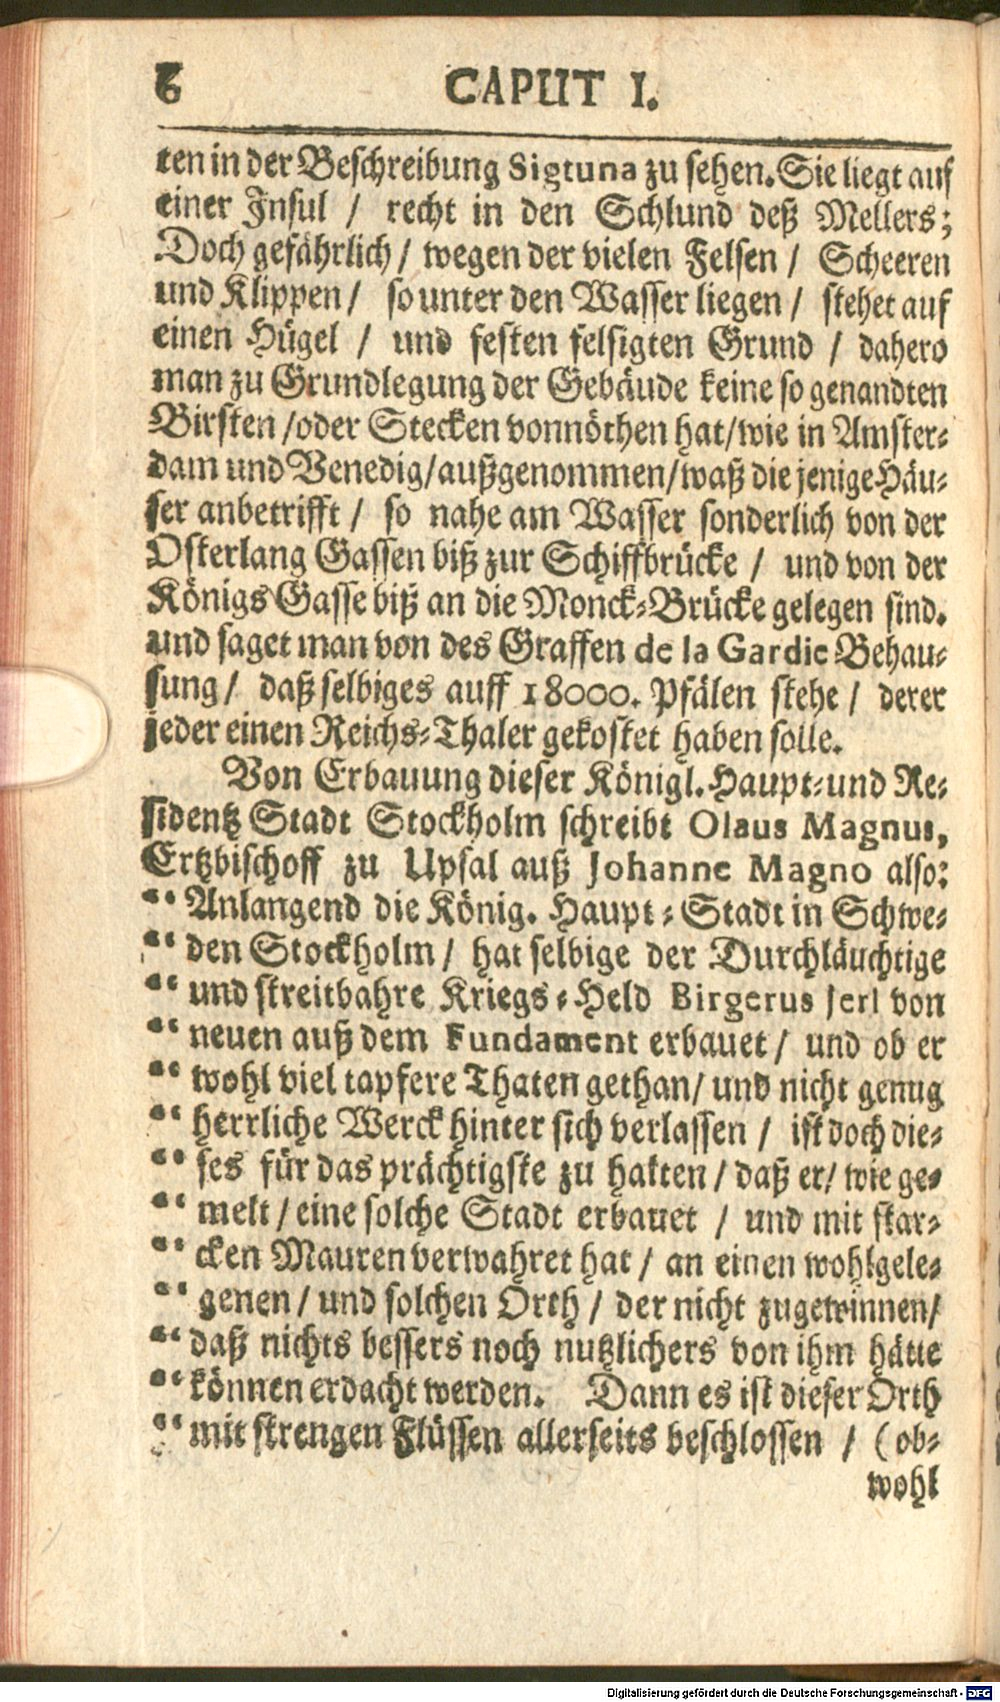 6 CAPUT I.
ten in der Beschreibung Sigtuna zu sehen. Sie liegt auf
einer Insul / recht in den Schlund deß Mellers;
Doch gefährlich / wegen der vielen Felsen / Scheeren
und Klippen / so unter den Wasser liegen / stehet auf
einen Hügel / und festen felsigten Grund / dahero
man zu Grundlegung der Gebäude keine so genandten
Birsten / oder Stecken vonnöthen hat / wie in Amster-
dam und Venedig / außgenommen / waß die jenige Häu-
ser anbetrifft / so nahe am Wasser sonderlich von der
Osterlang Gassen biß zur Schiffbrücke / und von der
Königs Gasse biß an die Monck-Brücke gelegen sind.
und saget man von des Graffen de la Gardie Behau-
sung / daß selbiges auff 18000. Pfälen stehe / derer
jeder einen Reichs-Thaler gekostet haben solle.
Von Erbauung dieser Königl. Haupt- und Re-
sidentz Stadt Stockholm schreibt Olaus Magnus,
Ertzbischoff zu Upsal auß Johanne Magno also:
“ Anlangend die König. Haupt-Stadt in Schwe-
“ den Stockholm / hat selbige der Durchläuchtige
“ und streitbahre Kriegs-Held Birgerus Jerl von
“ neuen auß dem Fundament erbauet / und ob er
“ wohl viel tapfere Thaten gethan / und nicht genug
“ herrliche Werck hinter sich verlassen / ist doch die-
“ ses für das prächtigste zu halten / daß er / wie ge-
“ melt / eine solche Stadt erbauet / und mit star-
“ cken Mauren verwahret hat / an einen wohlgele-
“ genen / und solchen Orth / der nicht zugewinnen /
“ daß nichts bessers noch nutzlichers von ihm hätte
“ können erdacht werden. Dann es ist dieser Orth
“ mit strengen Flüssen allerseits beschlossen / (ob-
wohl
Digitalisierung gefördert durch die Deutsche Forschungsgemeinschaft - DFG